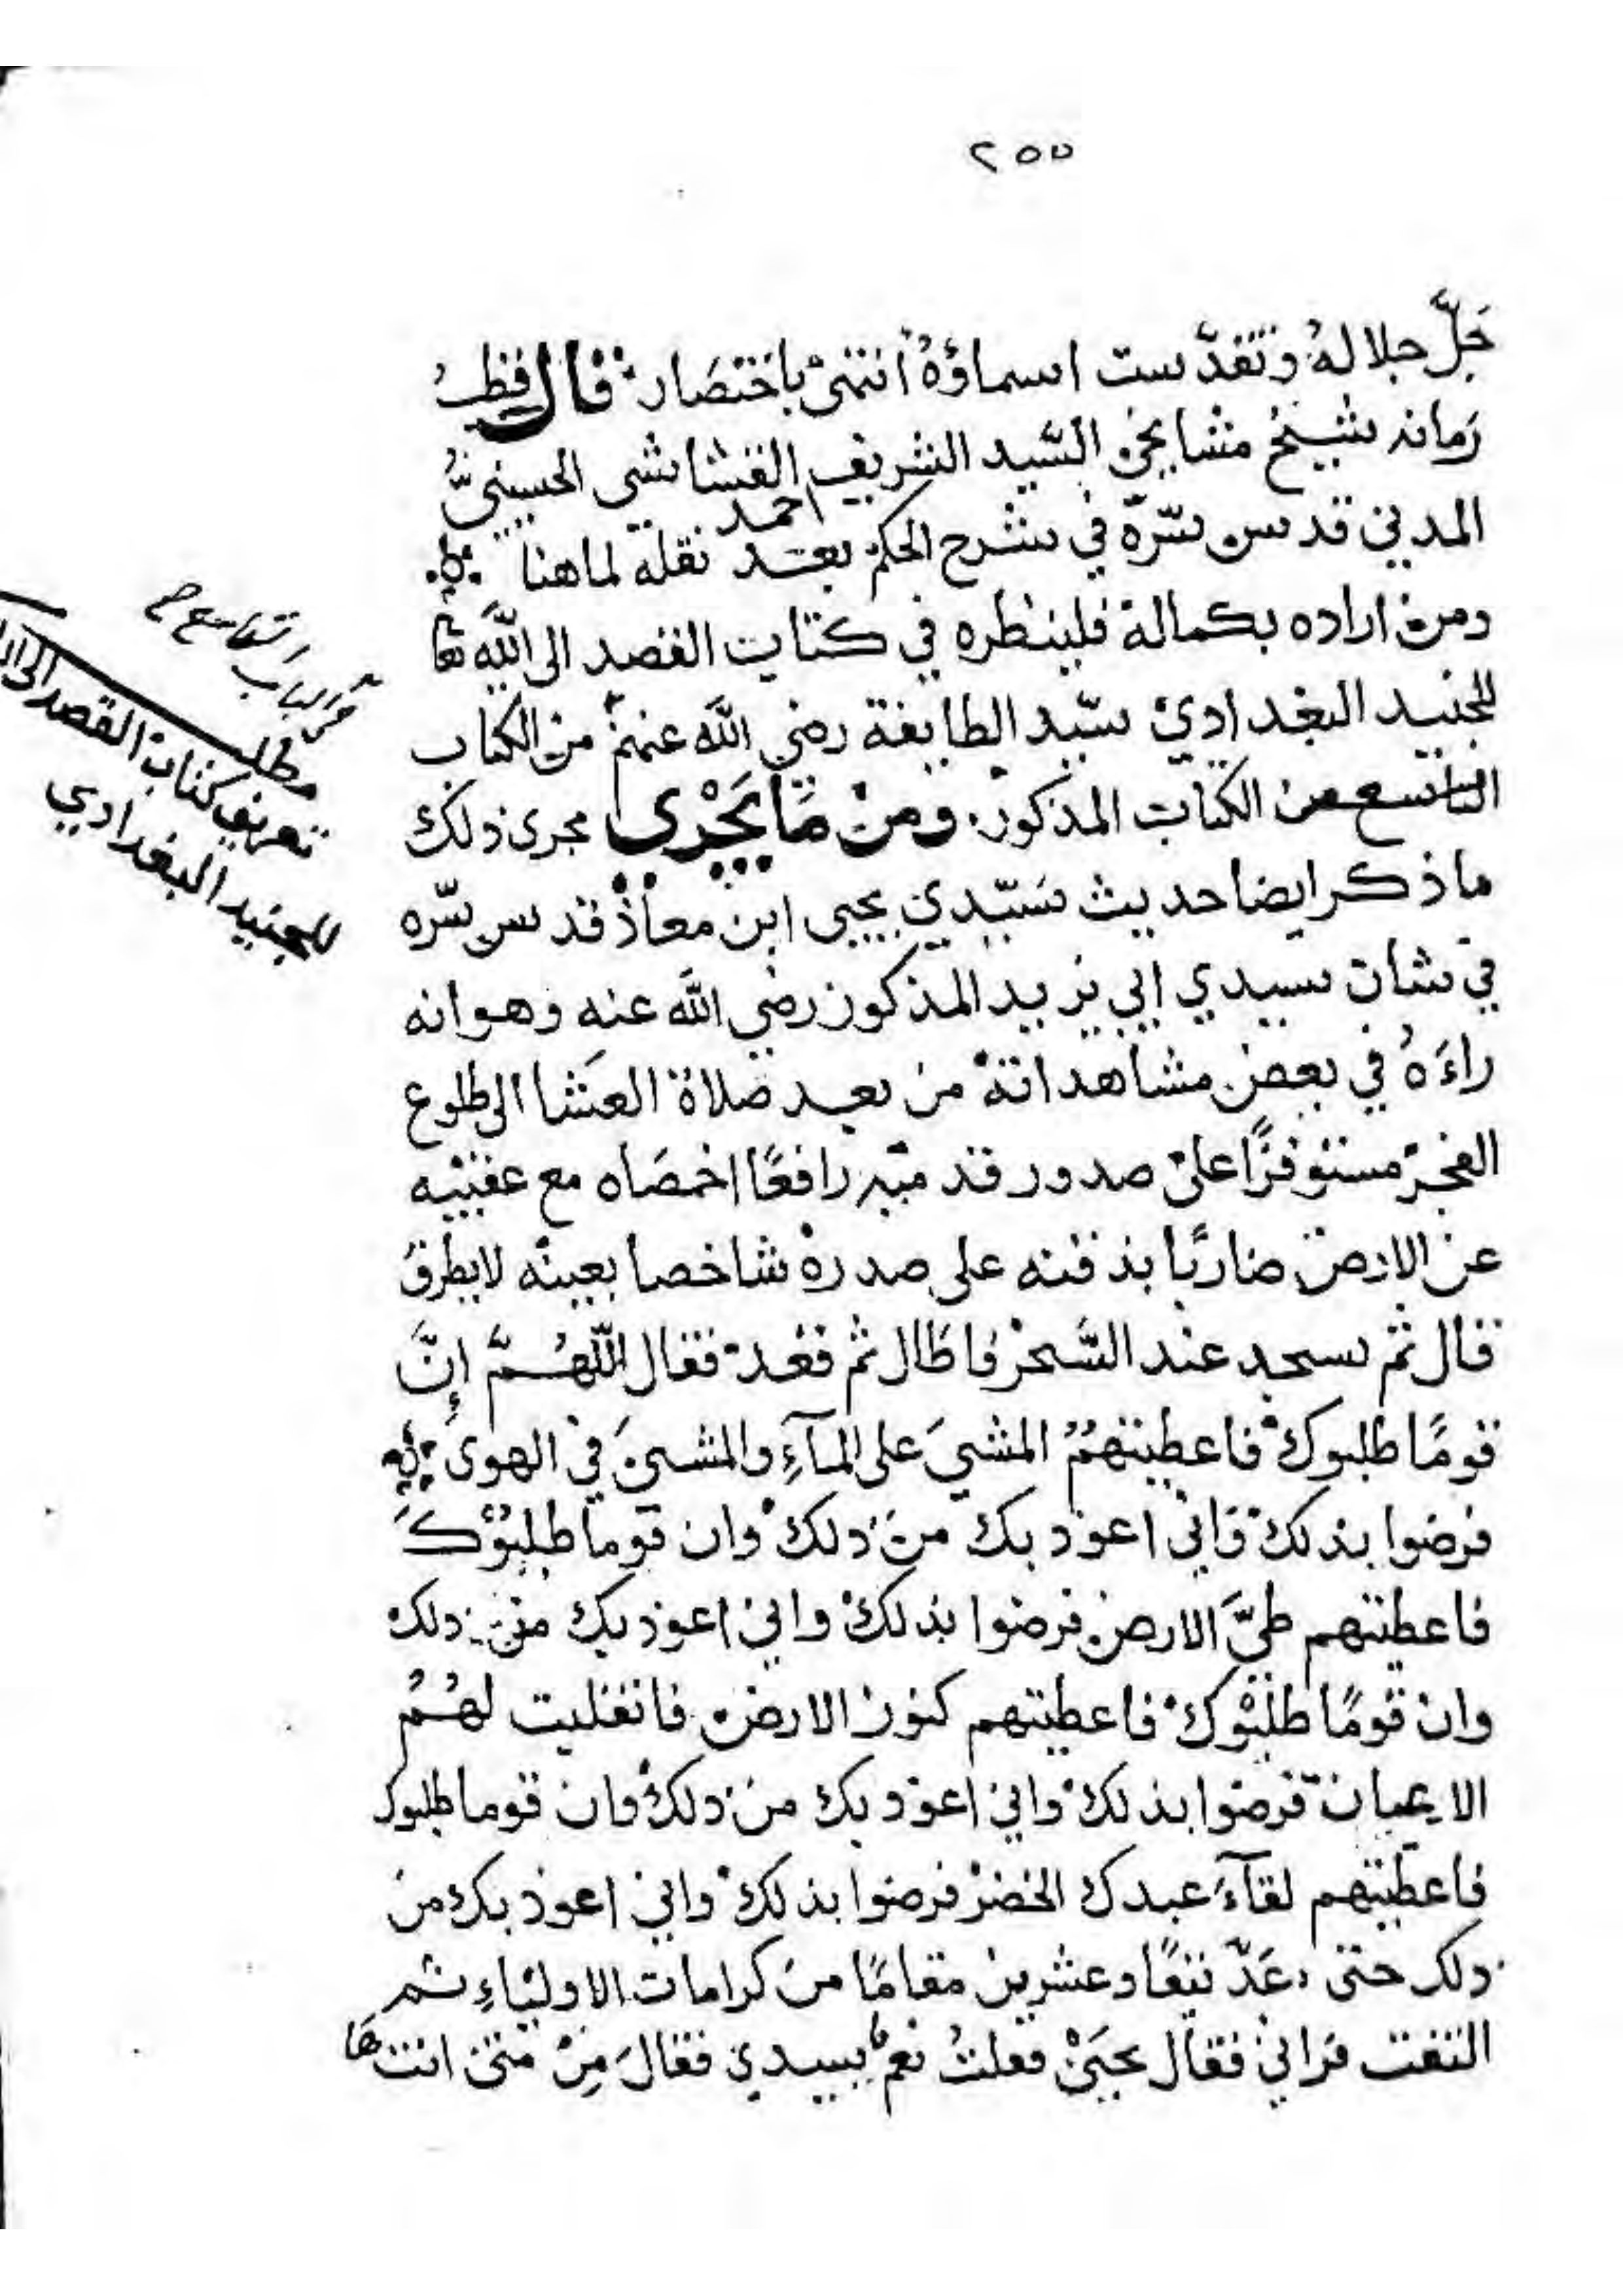 ٢٥٥
جَلَّ جلالهُ وتقدّست اسماؤهُ انتهى باختصار قال قطبُ
زمانه شيخ مشايخي السَّيد الشريف احمد القشاشي الحسيني
المدني قدس سرّه في شرح الحكم بعد نقله لماهنا
ومن اراده بكماله فلينظره في كتاب القصد الى اللّه تعا
للجنيد البغدادي سيّد الطايفة رضي اللّه عنهم من الكتاب
التاسع من الكتاب المذكور ومن مَا يَجْري مجرى ذلك
ماذكر ايضا حديث سَيّدي يحيى ابن معاذ قدس سّره
في شان سيدي ابي يزيد المذكور رضي اللّه عنه وهو انه
راءَهُ في بعض مشاهداته من بعد صلاة العَشا الى طلوع
الفجر مستوفزًا على صدور قدميه رافعًا اخمصَاه مع عقبيه
عن الارض ضاربًا بذقنه على صدره شاخصا بعينه لايطرق
قال ثم سجد عند السَّحر فاطَال ثم قعد فقال اللّهُمَّ إنَّ
قومًا طلبوك فاعطيتهُمُ المشيَ على المآءِ والمشيَ في الهوى
فرضوا بذلك فاني اعوذ بك من ذلك وان قوما طلبُوكَ
فاعطيتهم طيَّ الارض فرضوا بذلك واني اعوذ بك من ذلك
وان قومًا طلبُوك فاعطيتهم كنوز الارض فانقلبت لهُمُ
الاعيان فرضوا بذلك واني اعوذ بك من ذلك وان قوما طلبوك
فاعطيتهم لقآءَ عبدك الخضر فرضوا بذلك واني اعوذ بك من
ذلك حتى عَدَّ نيفًا وعشرين مقامًا من كرامات الاولياءِ ثم
التفت فراني فقال يحيَى فقلتُ نعم يسيدي فقالَ مِنْ متى انت هَا
مطلب
تعريف كتاب القصد الى الله
للجنيد البغدادي